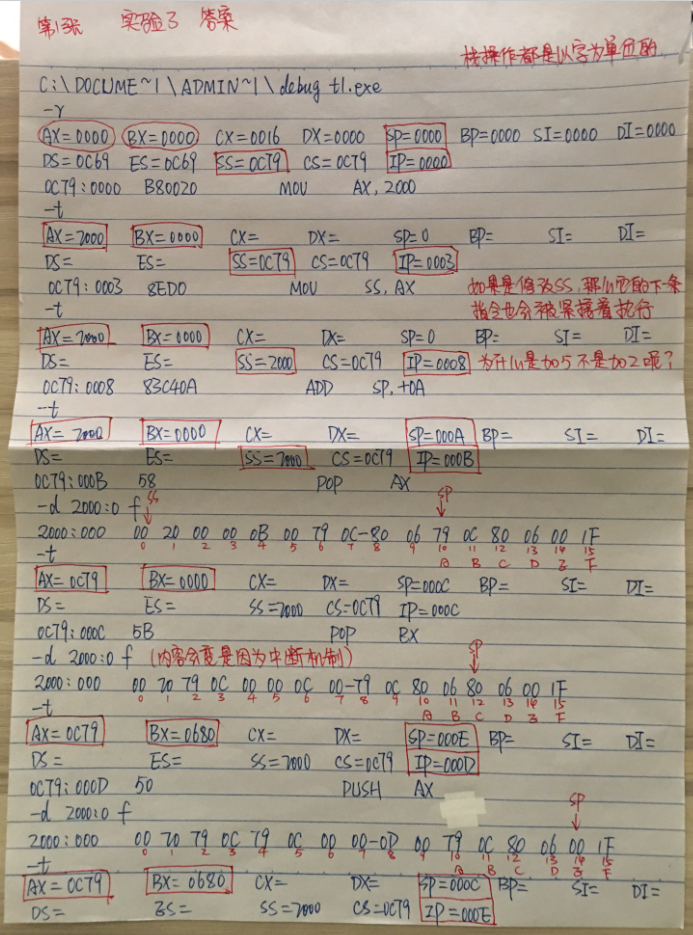 第1张 实验3 答案
栈操作都是以字为单位的
C:\DOCUME~1\ADMIN~1\debug t1.exe
-r
AX=0000 BX=0000 CX=0016 DX=0000 SP=0000 BP=0000 SI=0000 DI=0000
DS=0C69 ES=0C69 SS=0C79 CS=0C79 IP=0000
0C79:0000 B80020 MOV AX,2000
-t
AX=2000 BX=0000 CX= DX= SP=0 BP= SI= DI=
DS= ES= SS=0C79 CS=0C79 IP=0003
0C79:0003 8ED0 MOV SS,AX 如果是修改SS,那么它的下一条
-t 指令也会被紧接着执行
AX=2000 BX=0000 CX= DX= SP=0 BP= SI= DI=
DS= ES= SS=2000 CS=0C79 IP=0008 为什么是加5不是加2呢?
0C79:0008 83C40A ADD SP,+0A
-t
AX=2000 BX=0000 CX= DX= SP=000A BP= SI= DI=
DS= ES= SS=2000 CS=0C79 IP=000B
0C79:000B 58 POP AX
-d 2000:0 f SS SP
2000:000 00 20 00 00 0B 00 79 0C-80 06 79 0C 80 06 00 1F
0 1 2 3 4 5 6 7 8 9 10 11 12 13 14 15
A B C D E F
-t
AX=0C79 BX=0000 CX= DX= SP=000C BP= SI= DI=
DS= ES= SS=2000 CS=0C79 IP=000C
0C79:000C 5B POP BX
-d 2000:0 f (内容会变是因为中断机制) SP
2000:000 00 20 79 0C 00 00 0C 00-79 0C 80 06 80 06 00 1F
0 1 2 3 4 5 6 7 8 9 10 11 12 13 14 15
A B C D E F
-t
AX=0C79 BX=0680 CX= DX= SP=000E BP= SI= DI=
DS= ES= SS=2000 CS=0C79 IP=000D
0C79:000D 50 PUSH AX
-d 2000:0 f SP
2000:000 00 20 79 0C 79 0C 00 00-0D 00 79 0C 80 06 00 1F
0 1 2 3 4 5 6 7 8 9 10 11 12 13 14 15
A B C D E F
-t
AX=0C79 BX=0680 CX= DX= SP=000C BP= SI= DI=
DS= ES= SS=2000 CS=0C79 IP=000E